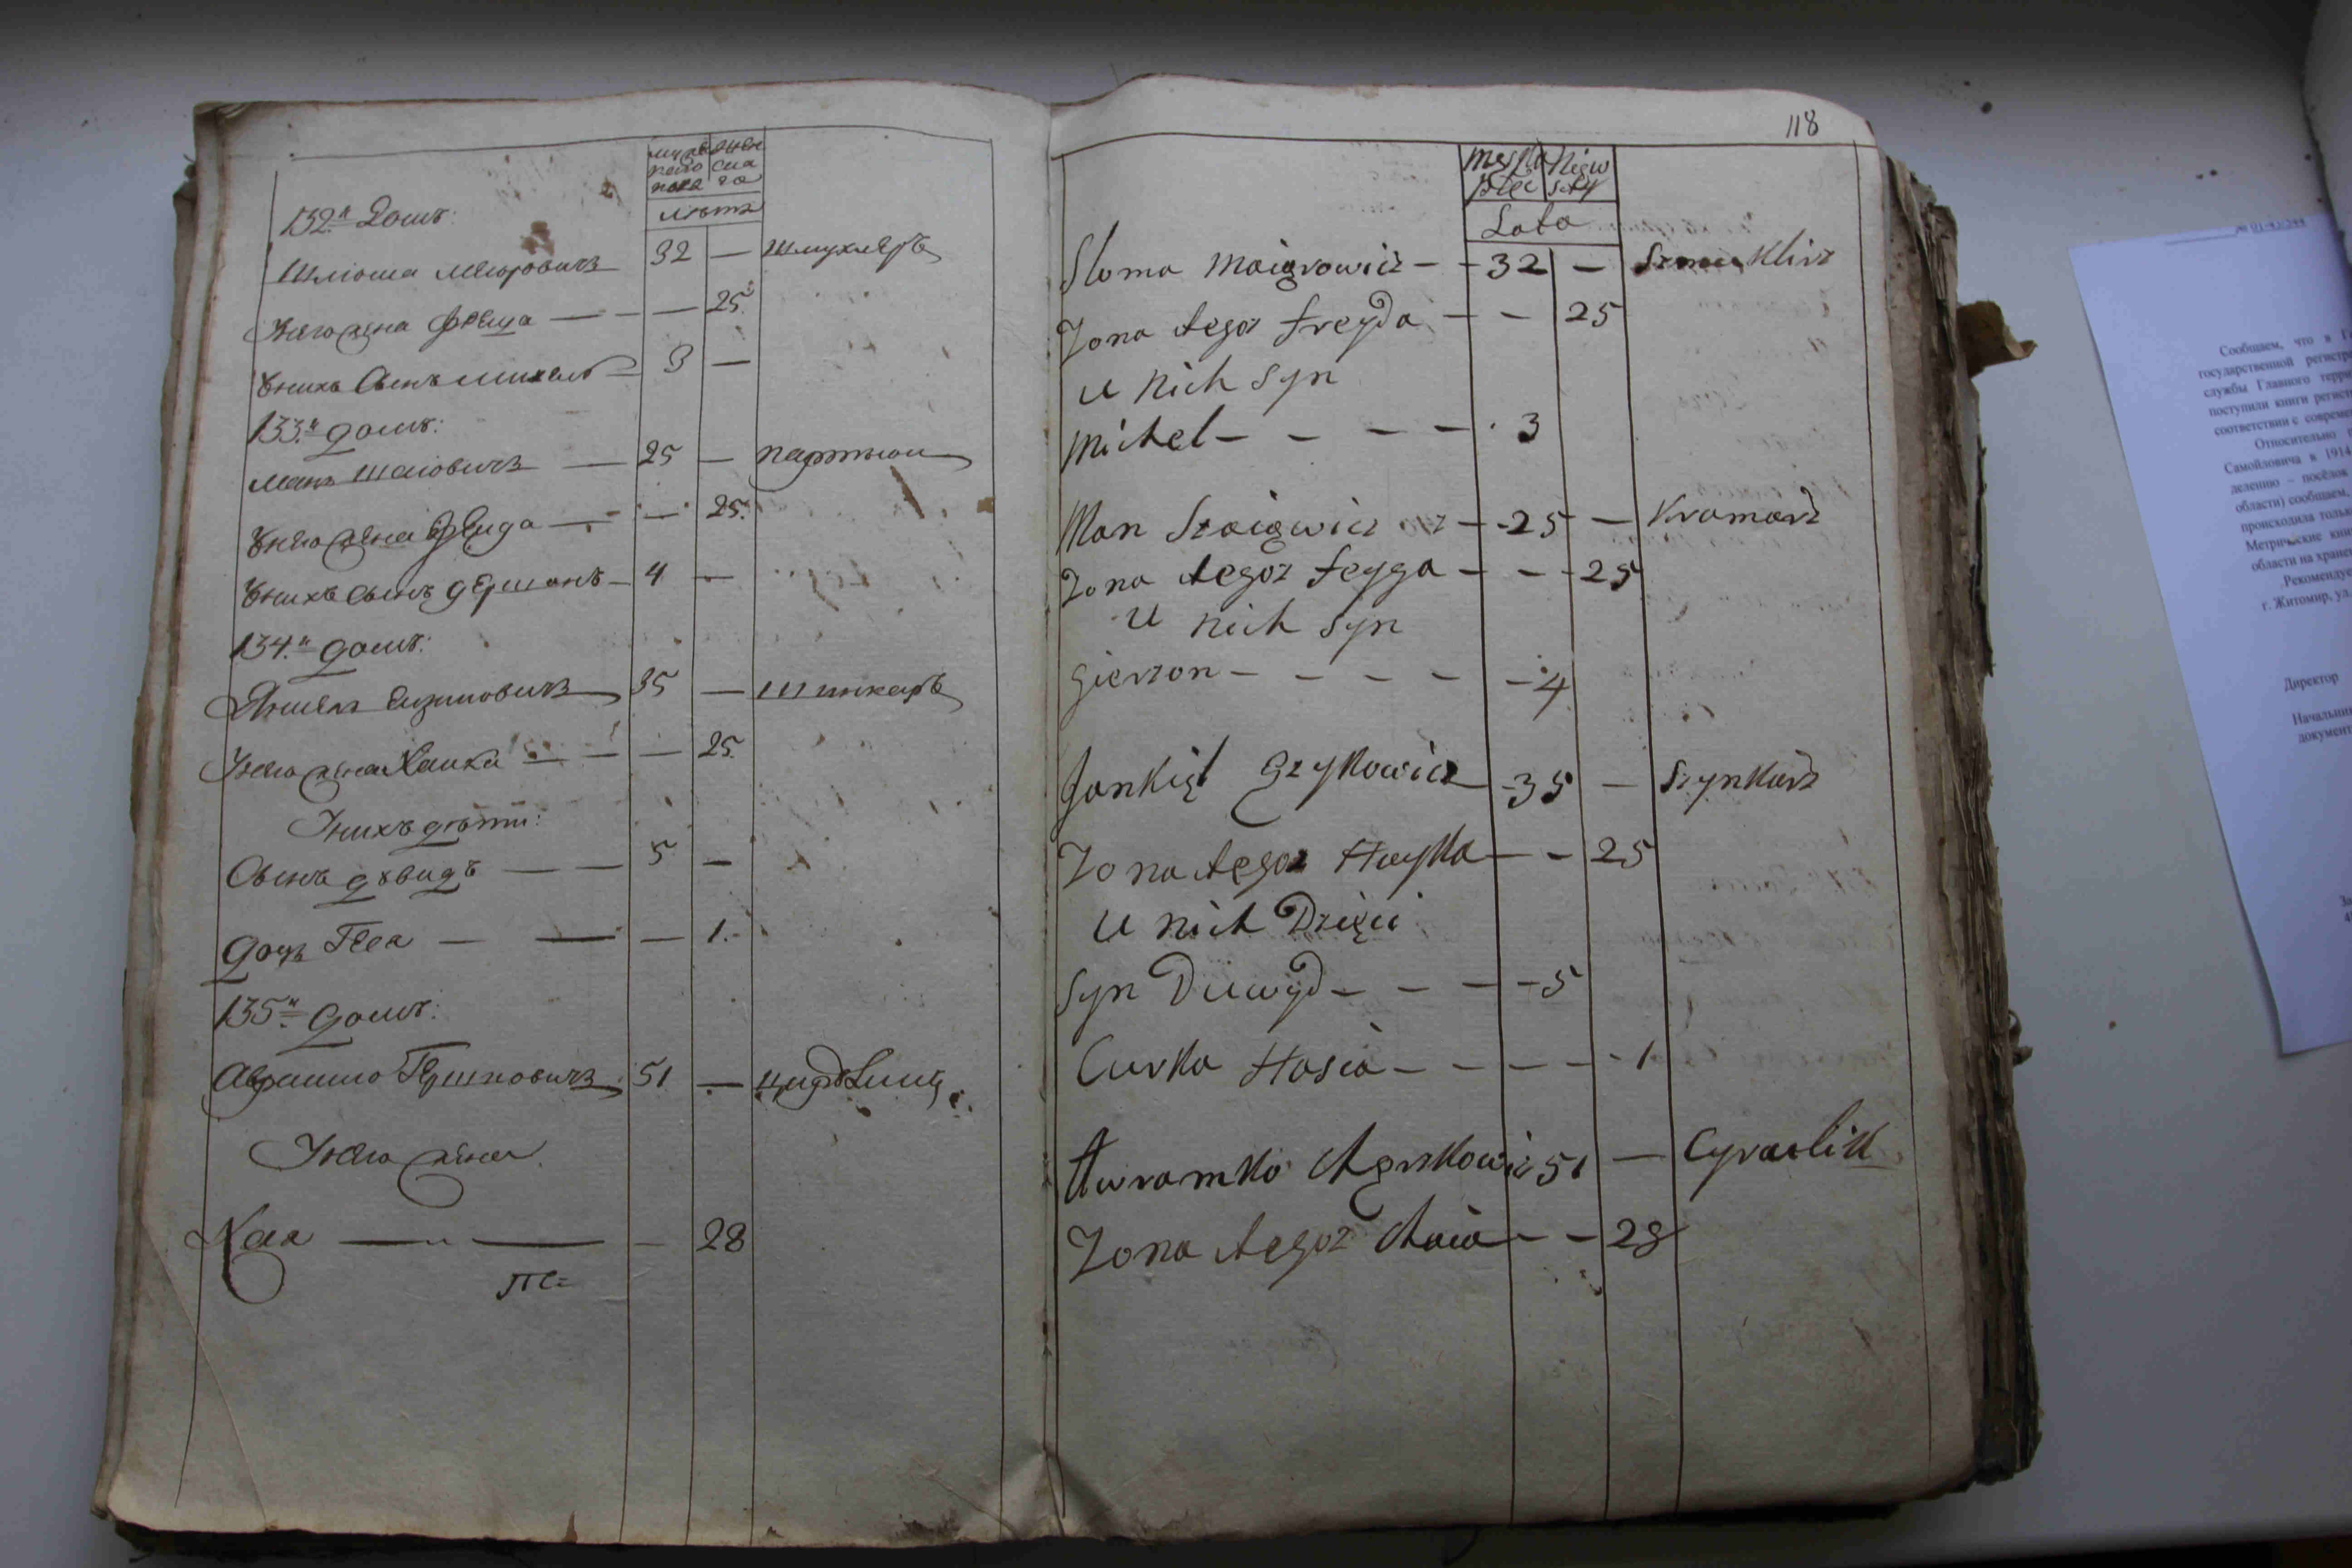 мужеска пола
женска го
лѣта
132.й Домъ:
Шліома Меюровичъ — 32 — шмухлеръ
Унего жена Фрейда — — — 25.
Унихъ Сынъ михель — 3 —
133.й домъ:
Манъ Шаіовичъ — 25 —
Унего жена Фейга — — 25.
Унихъ Сынъ гершонъ — 4 —
134.й домъ:
Янкель Ицковичъ 35 — шинкаръ
Унего жена Хаика — — — 25.
Унихъ дѣти:
Сынъ дувидъ — — 5 —
дочь Геся — — — 1.
135.й домъ:
Аврамко Гершковичъ 51. — цирулникъ
Унего жена
Хая — — — 28
118
Męska płeć
Niewsty
Lata
Sloma Maiorowicz — — 32 — Szmuklirz
Zona tegoz freyda — — 25
u nich syn
Michel — — — — 3
Man Szaiowicz — — 25 — Kramarz
Zona tegoz feyga — — — 25
u nich syn
gierszon — — — — — 4
Jankiel Jcykowicz — 35 — Szynkarz
Zona tegoz Hayka — — 25
u nich Dzieci
syn Duwyd — — — — 5
Curka Hasia — — — — — 1
Awramko Herszkowicz 51 — Cyrulik
Zona tegoz Chaia — — 28
Сообщаем, что в Г
государственной регистр
службы Главного терри
поступили книги регист
соответствии с совреме
Относительно
Самойловича в 1914
делению – посёлок
области) сообщаем,
происходила тольк
Метрические кни
области на хране
Рекомендуе
г. Житомир, ул.
Директор
Начальни
документ